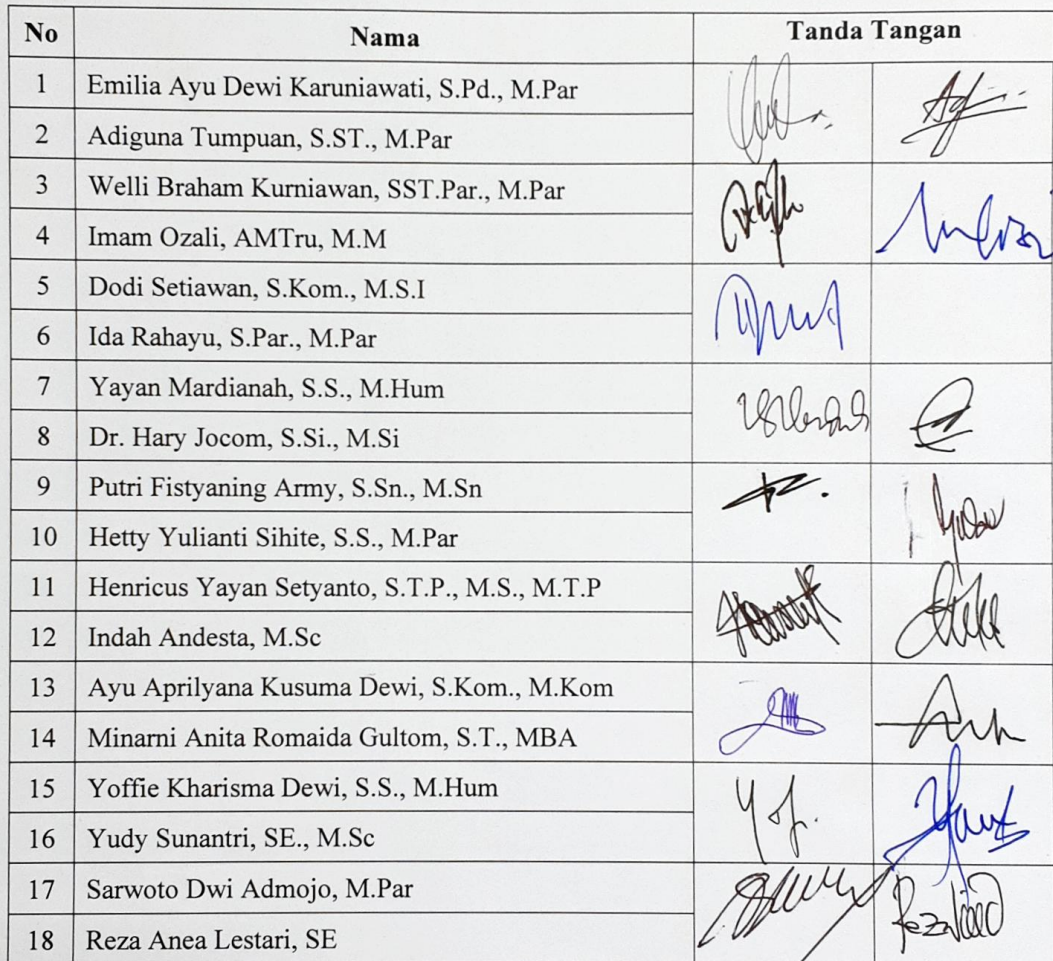 No Nama Tanda Tangan
1 Emilia Ayu Dewi Karuniawati, S.Pd., M.Par
2 Adiguna Tumpuan, S.ST., M.Par
3 Welli Braham Kurniawan, SST.Par., M.Par
4 Imam Ozali, AMTru, M.M
5 Dodi Setiawan, S.Kom., M.S.I
6 Ida Rahayu, S.Par., M.Par
7 Yayan Mardianah, S.S., M.Hum
8 Dr. Hary Jocom, S.Si., M.Si
9 Putri Fistyaning Army, S.Sn., M.Sn
10 Hetty Yulianti Sihite, S.S., M.Par
11 Henricus Yayan Setyanto, S.T.P., M.S., M.T.P
12 Indah Andesta, M.Sc
13 Ayu Aprilyana Kusuma Dewi, S.Kom., M.Kom
14 Minarni Anita Romaida Gultom, S.T., MBA
15 Yoffie Kharisma Dewi, S.S., M.Hum
16 Yudy Sunantri, SE., M.Sc
17 Sarwoto Dwi Admojo, M.Par
18 Reza Anea Lestari, SE